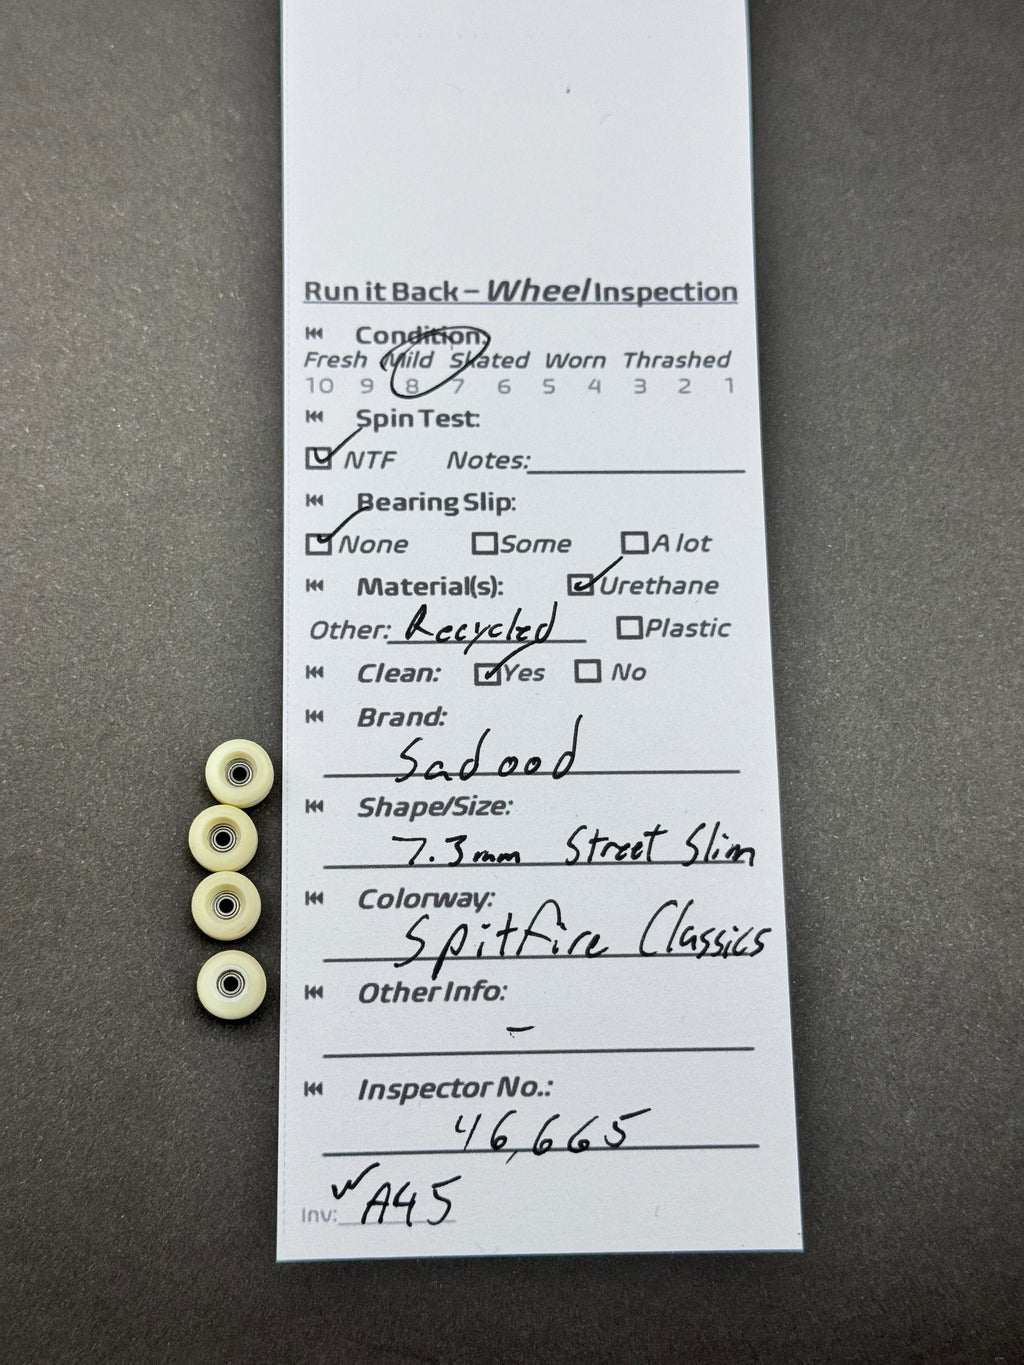 Run it Back – Wheel Inspection
Condition:
Fresh Mild Skated Worn Thrashed
10 9 8 7 6 5 4 3 2 1
Spin Test:
NTF Notes:
Bearing Slip:
None Some A lot
Material(s): Urethane
Other: Recycled Plastic
Clean: Yes No
Brand:
Sadood
Shape/Size:
7.3mm Street Slim
Colorway:
Spitfire Classics
Other Info:
-
Inspector No.:
46,665
Inv: WA45